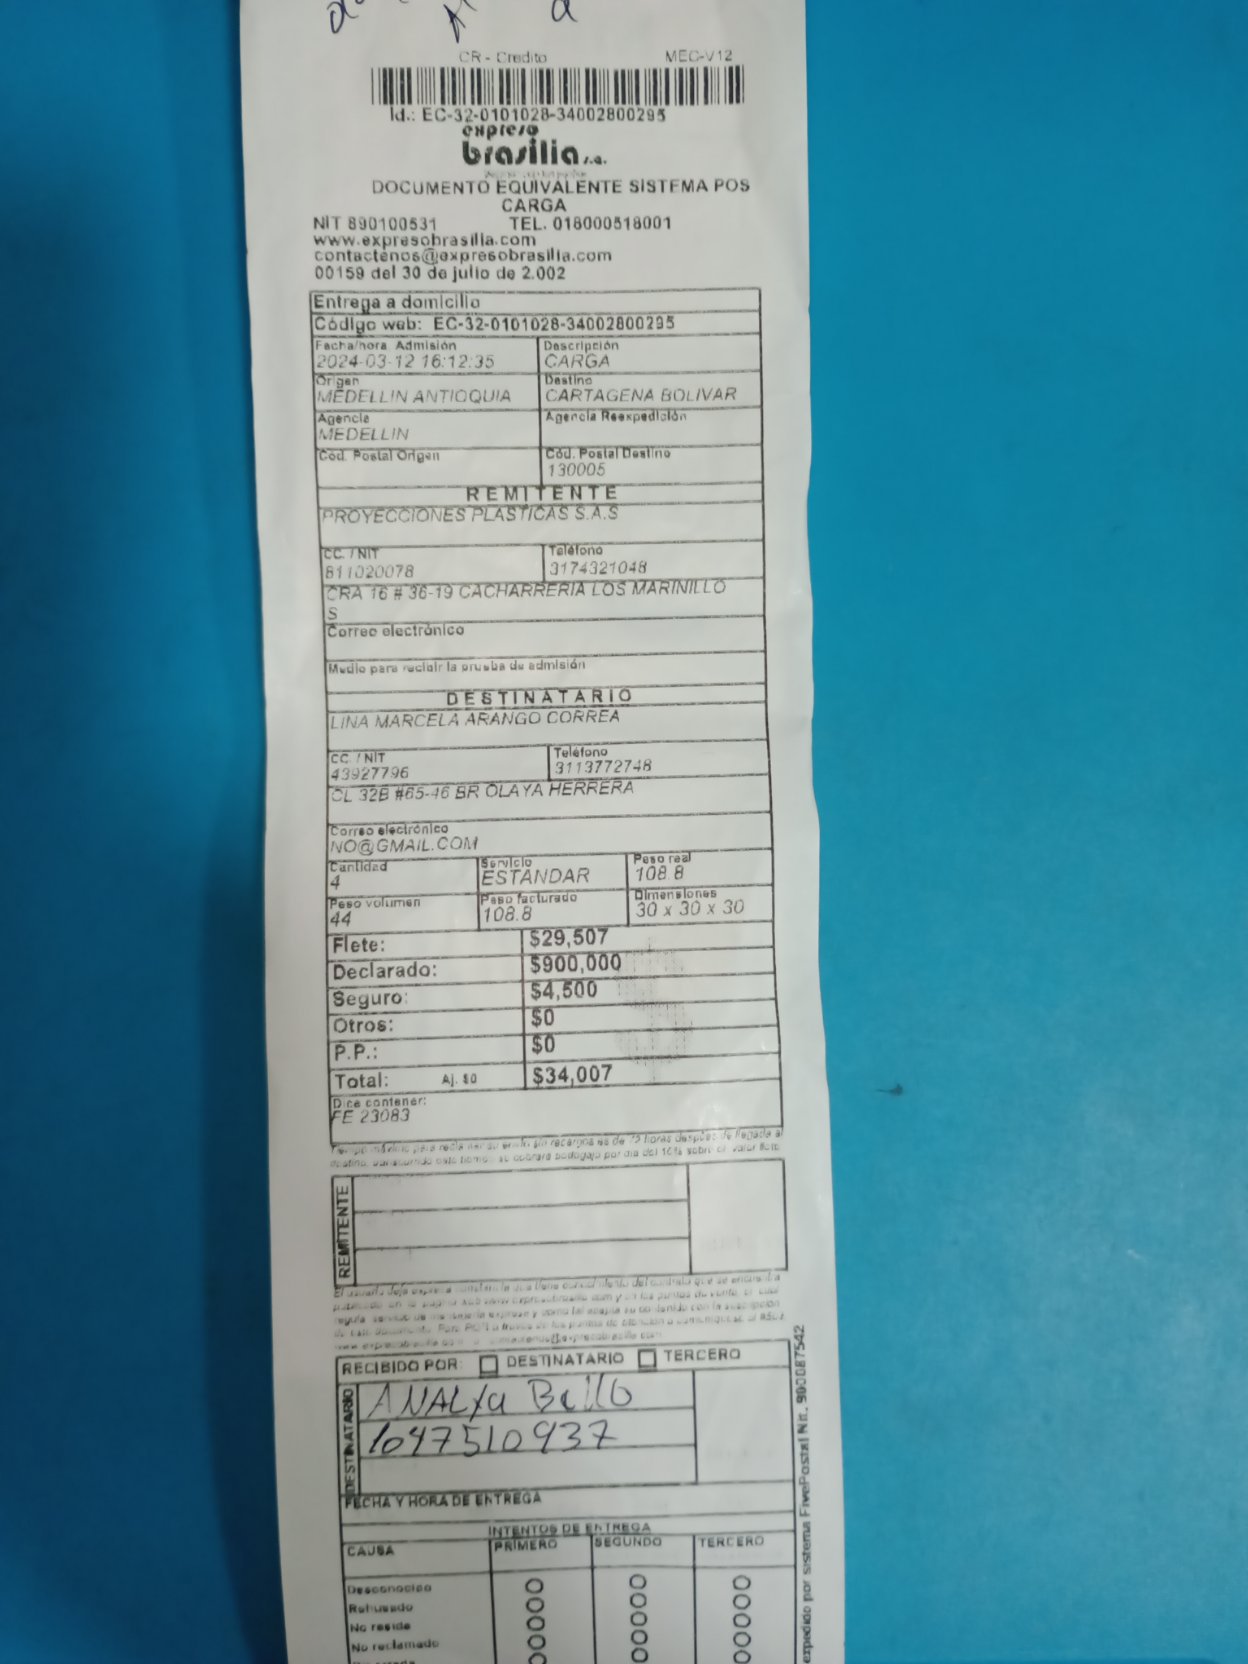 CR - Credito MEC-V12
Id.: EC-32-0101028-34002800295
expreso
brasilia s.a.
DOCUMENTO EQUIVALENTE SISTEMA POS
CARGA
NIT 890100531 TEL. 018000518001
www.expresobrasilia.com
contactenos@expresobrasilia.com
00159 del 30 de julio de 2.002
Entrega a domicilio
Código web: EC-32-0101028-34002800295
Fecha/hora Admisión Descripción
2024-03-12 16:12:35 CARGA
Origen Destino
MEDELLIN ANTIOQUIA CARTAGENA BOLIVAR
Agencia Agencia Reexpedición
MEDELLIN
Cod. Postal Origen Cód. Postal Destino
130005
REMITENTE
PROYECCIONES PLASTICAS S.A.S
CC. / NIT Teléfono
811020078 3174321048
CRA 16 # 36-19 CACHARRERIA LOS MARINILLO
S
Correo electrónico
Medio para recibir la prueba de admisión
DESTINATARIO
LINA MARCELA ARANGO CORREA
CC. / NIT Teléfono
43927796 3113772748
CL 32B #65-46 BR OLAYA HERRERA
Correo electrónico
NO@GMAIL.COM
Cantidad Servicio Peso real
4 ESTANDAR 108.8
Peso volumen Peso facturado Dimensiones
44 108.8 30 x 30 x 30
Flete: $29,507
Declarado: $900,000
Seguro: $4,500
Otros: $0
P.P.: $0
Total: Aj. $0 $34,007
Dice contener:
FE 23083
REMITENTE
RECIBIDO POR: DESTINATARIO TERCERO
DESTINATARIO
ANALya Bello
1047510937
FECHA Y HORA DE ENTREGA
INTENTOS DE ENTREGA
CAUSA PRIMERO SEGUNDO TERCERO
Desconocido
Rehusado
No reside
No reclamado
expedido por sistema FivePostal Nit. 900087542